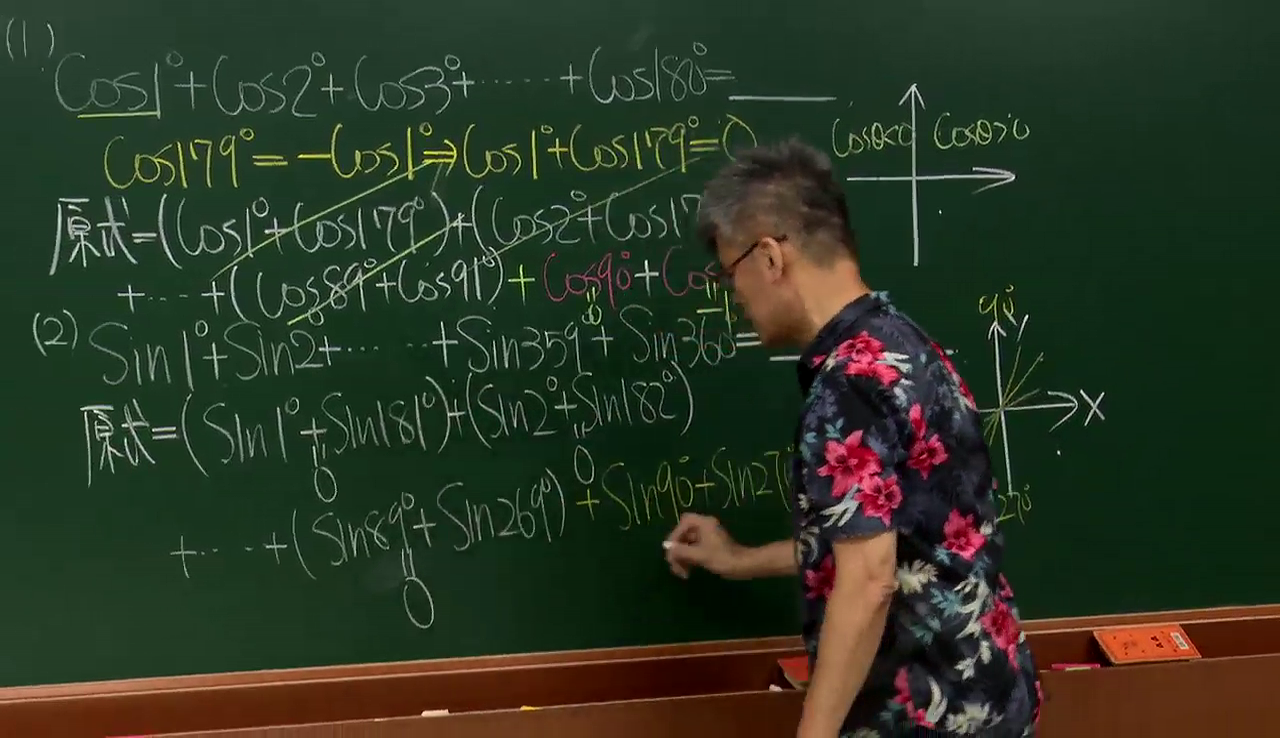 (1)
Cos1°+Cos2°+Cos3°+……+Cos180°=____
Cos179°=-Cos1°⇒Cos1°+Cos179°=0
原式=(Cos1°+Cos179°)+(Cos2°+Cos17
+……+(Cos89°+Cos91°)+Cos90°+Cos
0
-1
(2) Sin1°+Sin2°+……+Sin359°+Sin360°=
原式=(Sin1°+Sin181°)+(Sin2°+Sin182°)
0
0
+……+(Sin89°+Sin269°)+Sin90°+Sin27
0
Cosθ<0 Cosθ>0
90°
Y
X
270°